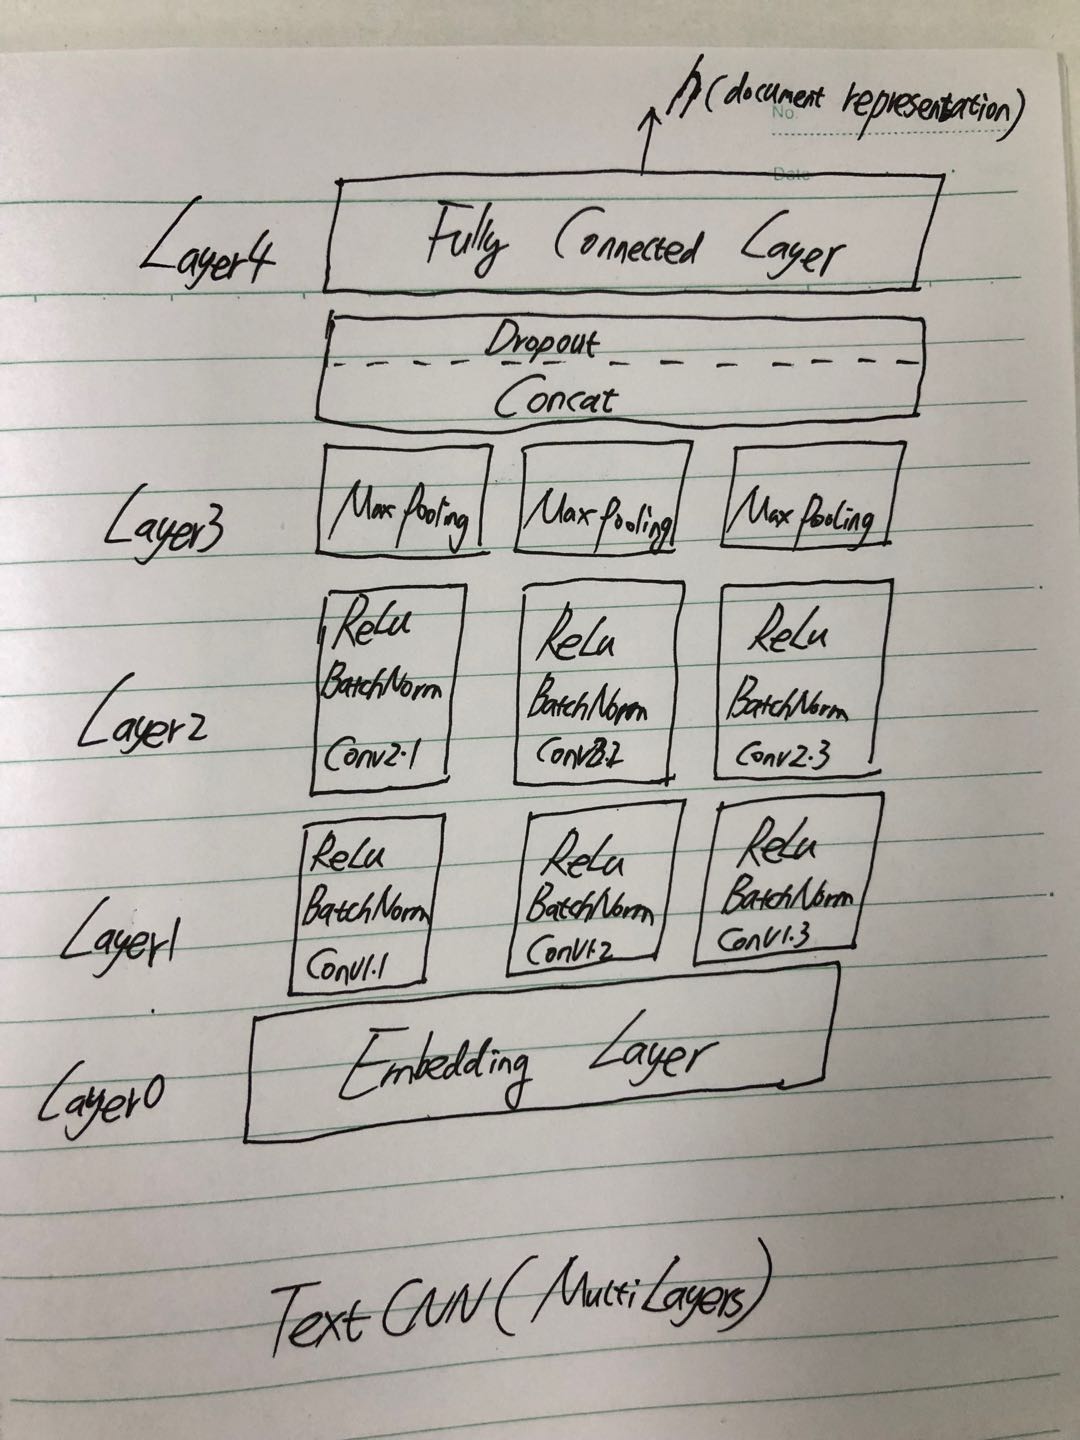 h (document representation)
No.
Date
Layer4
Fully Connected Layer
Dropout
Concat
Layer3
Max Pooling
Max Pooling
Max Pooling
Layer2
ReLu
BatchNorm
Conv2.1
ReLu
BatchNorm
Conv2.2
ReLu
BatchNorm
Conv2.3
Layer1
ReLu
BatchNorm
Conv1.1
ReLu
BatchNorm
Conv1.2
ReLu
BatchNorm
Conv1.3
Layer0
Embedding Layer
Text CNN (Multi Layers)